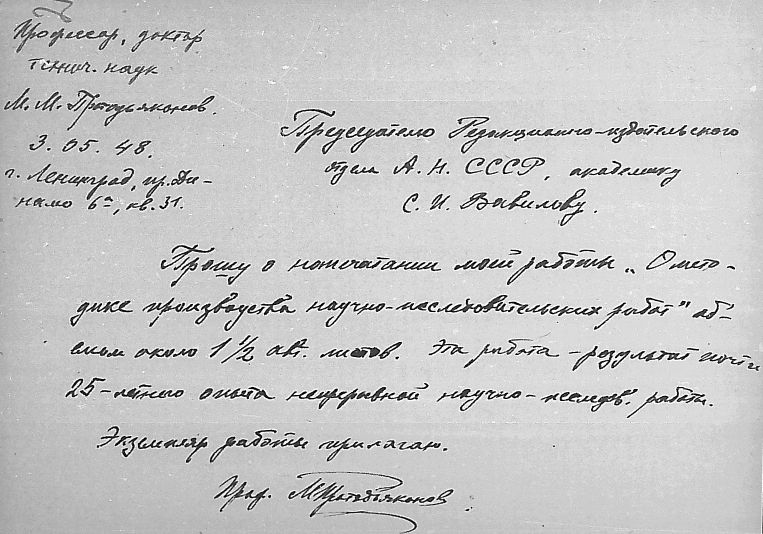 Профессор, доктор
технич. наук
М. М. Протодьяконов.
3. 05. 48.
г. Ленинград, пр. Ди-
намо 6а, кв. 31.
Председателю Редакционно-издательского
отдела А. Н. СССР, академику
С. И. Вавилову.
Прошу о напечатании моей работы „О мето-
дике производства научно-исследовательских работ" об'-
емом около 1 1/2 авт. листов. Эта работа - результат почти
25-летнего опыта непрерывной научно-исследов. работы.
Экземпляр работы прилагаю.
Проф. МПротодьяконов